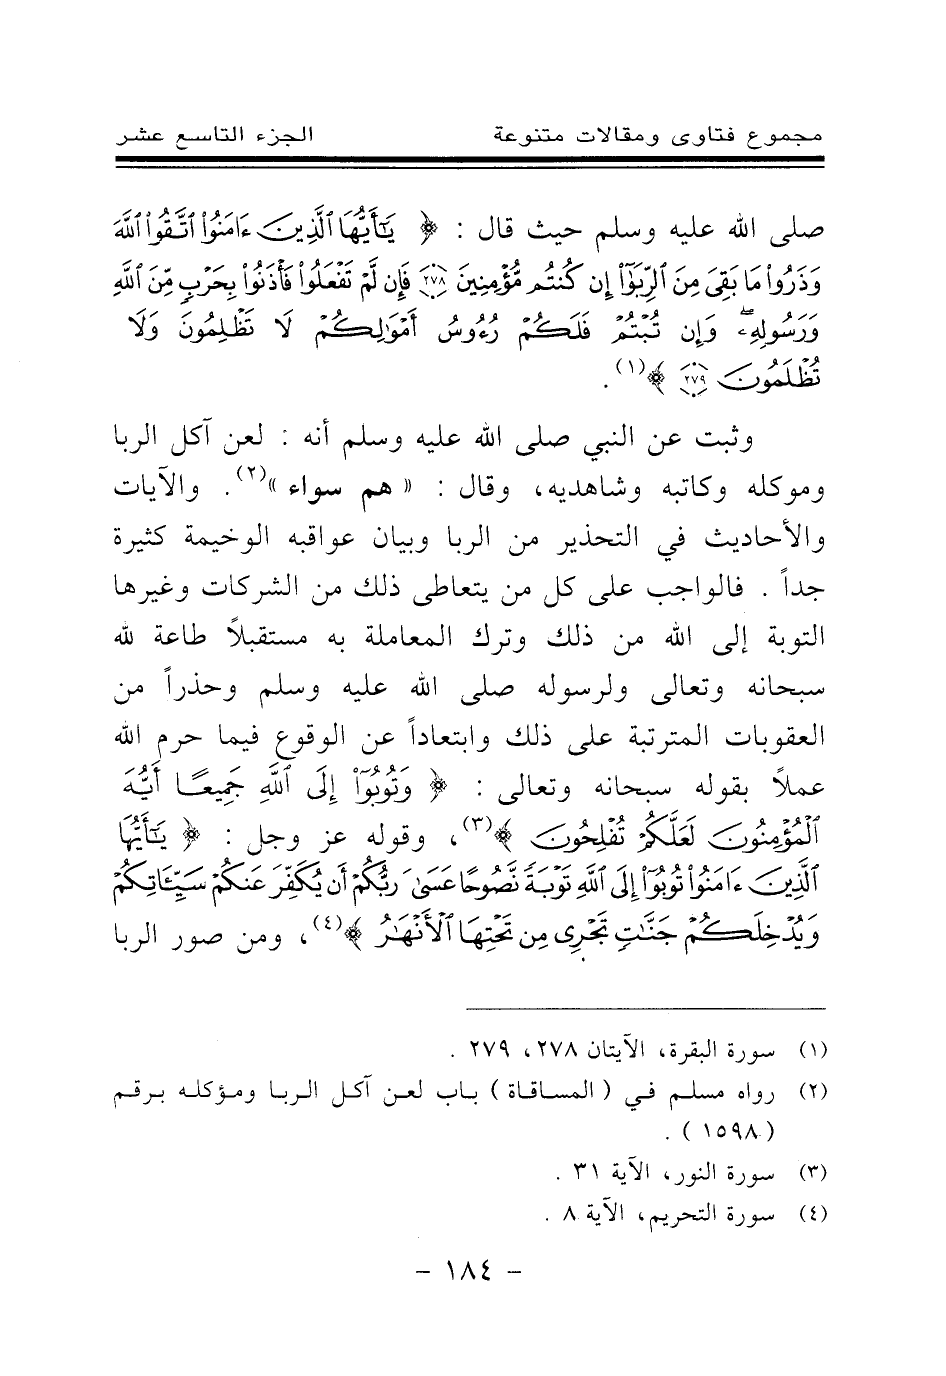 مجموع فتاوى ومقالات متنوعة الجزء التاسع عشر
صلى الله عليه وسلم حيث قال : ﴿ يَٰٓأَيُّهَا ٱلَّذِينَ ءَامَنُوا۟ ٱتَّقُوا۟ ٱللَّهَ
وَذَرُوا۟ مَا بَقِىَ مِنَ ٱلرِّبَوٰٓا۟ إِن كُنتُم مُّؤْمِنِينَ ٢٧٨ فَإِن لَّمْ تَفْعَلُوا۟ فَأْذَنُوا۟ بِحَرْبٍ مِّنَ ٱللَّهِ
وَرَسُولِهِۦ ۖ وَإِن تُبْتُمْ فَلَكُمْ رُءُوسُ أَمْوَٰلِكُمْ لَا تَظْلِمُونَ وَلَا
تُظْلَمُونَ ٢٧٩ ﴾(١) .
وثبت عن النبي صلى الله عليه وسلم أنه : لعن آكل الربا
وموكله وكاتبه وشاهديه، وقال : « هم سواء »(٢). والآيات
والأحاديث في التحذير من الربا وبيان عواقبه الوخيمة كثيرة
جداً . فالواجب على كل من يتعاطى ذلك من الشركات وغيرها
التوبة إلى الله من ذلك وترك المعاملة به مستقبلاً طاعة لله
سبحانه وتعالى ولرسوله صلى الله عليه وسلم وحذراً من
العقوبات المترتبة على ذلك وابتعاداً عن الوقوع فيما حرم الله
عملاً بقوله سبحانه وتعالى : ﴿ وَتُوبُوٓا۟ إِلَى ٱللَّهِ جَمِيعًا أَيُّهَ
ٱلْمُؤْمِنُونَ لَعَلَّكُمْ تُفْلِحُونَ ﴾(٣)، وقوله عز وجل : ﴿ يَٰٓأَيُّهَا
ٱلَّذِينَ ءَامَنُوا۟ تُوبُوٓا۟ إِلَى ٱللَّهِ تَوْبَةً نَّصُوحًا عَسَىٰ رَبُّكُمْ أَن يُكَفِّرَ عَنكُمْ سَيِّـَٔاتِكُمْ
وَيُدْخِلَكُمْ جَنَّٰتٍ تَجْرِى مِن تَحْتِهَا ٱلْأَنْهَٰرُ ﴾(٤)، ومن صور الربا
(١) سورة البقرة، الآيتان ٢٧٨، ٢٧٩ .
(٢) رواه مسلم في ( المساقاة ) باب لعن آكل الربا ومؤكله برقم
( ١٥٩٨ ) .
(٣) سورة النور، الآية ٣١ .
(٤) سورة التحريم، الآية ٨ .
- ١٨٤ -